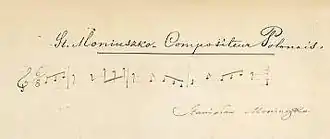 St. Moniuszko. Compositeur Polonais.
Stanisław Moniuszko